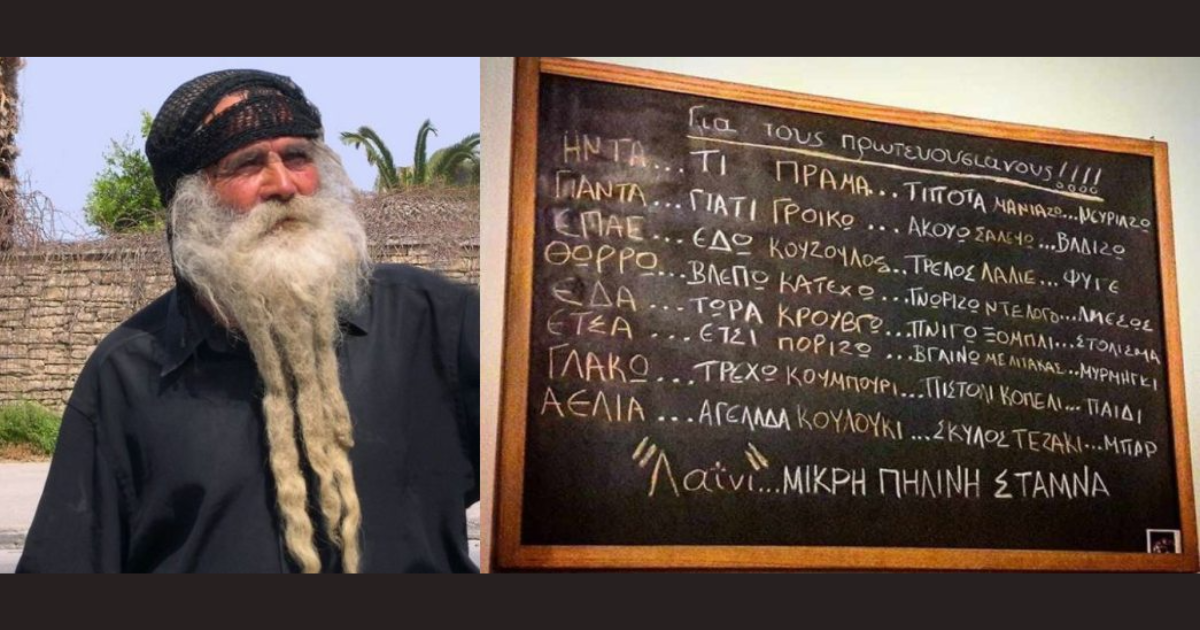 Για τους πρωτευουσιάνους!!!!
ΗΝΤΑ... ΤΙ ΠΡΑΜΑ... ΤΙΠΟΤΑ ΜΑΝΙΑΖΩ...ΝΕΥΡΙΑΖΩ
ΓΙΑΝΤΑ... ΓΙΑΤΙ ΓΡΟΙΚΩ... ΑΚΟΥΩ ΣΑΛΕΥΩ...ΒΑΔΙΖΩ
ΕΠΑΕ... ΕΔΩ ΚΟΥΖΟΥΛΟΣ...ΤΡΕΛΟΣ ΛΑΛΙΕ... ΦΥΓΕ
ΘΩΡΡΩ...ΒΛΕΠΩ ΚΑΤΕΧΩ...ΓΝΩΡΙΖΩ ΝΤΕΛΟΓΟ...ΑΜΕΣΩΣ
ΕΔΑ... ΤΩΡΑ ΚΡΟΥΒΓΩ...ΠΝΙΓΩ ΞΟΜΠΛΙ...ΣΤΟΛΙΣΜΑ
ΕΤΣΑ... ΕΤΣΙ ΠΟΡΙΖΩ...ΒΓΑΙΝΩ ΜΕΛΙΤΑΚΑΣ...ΜΥΡΜΗΓΚΙ
ΓΛΑΚΩ...ΤΡΕΧΩ ΚΟΥΜΠΟΥΡΙ...ΠΙΣΤΟΛΙ ΚΟΠΕΛΙ...ΠΑΙΔΙ
ΑΕΛΙΑ...ΑΓΕΛΑΔΑ ΚΟΥΛΟΥΚΙ...ΣΚΥΛΟΣ ΤΕΖΑΚΙ...ΜΠΑΡ
"Λαΐνι"...ΜΙΚΡΗ ΠΗΛΙΝΗ ΣΤΑΜΝΑ